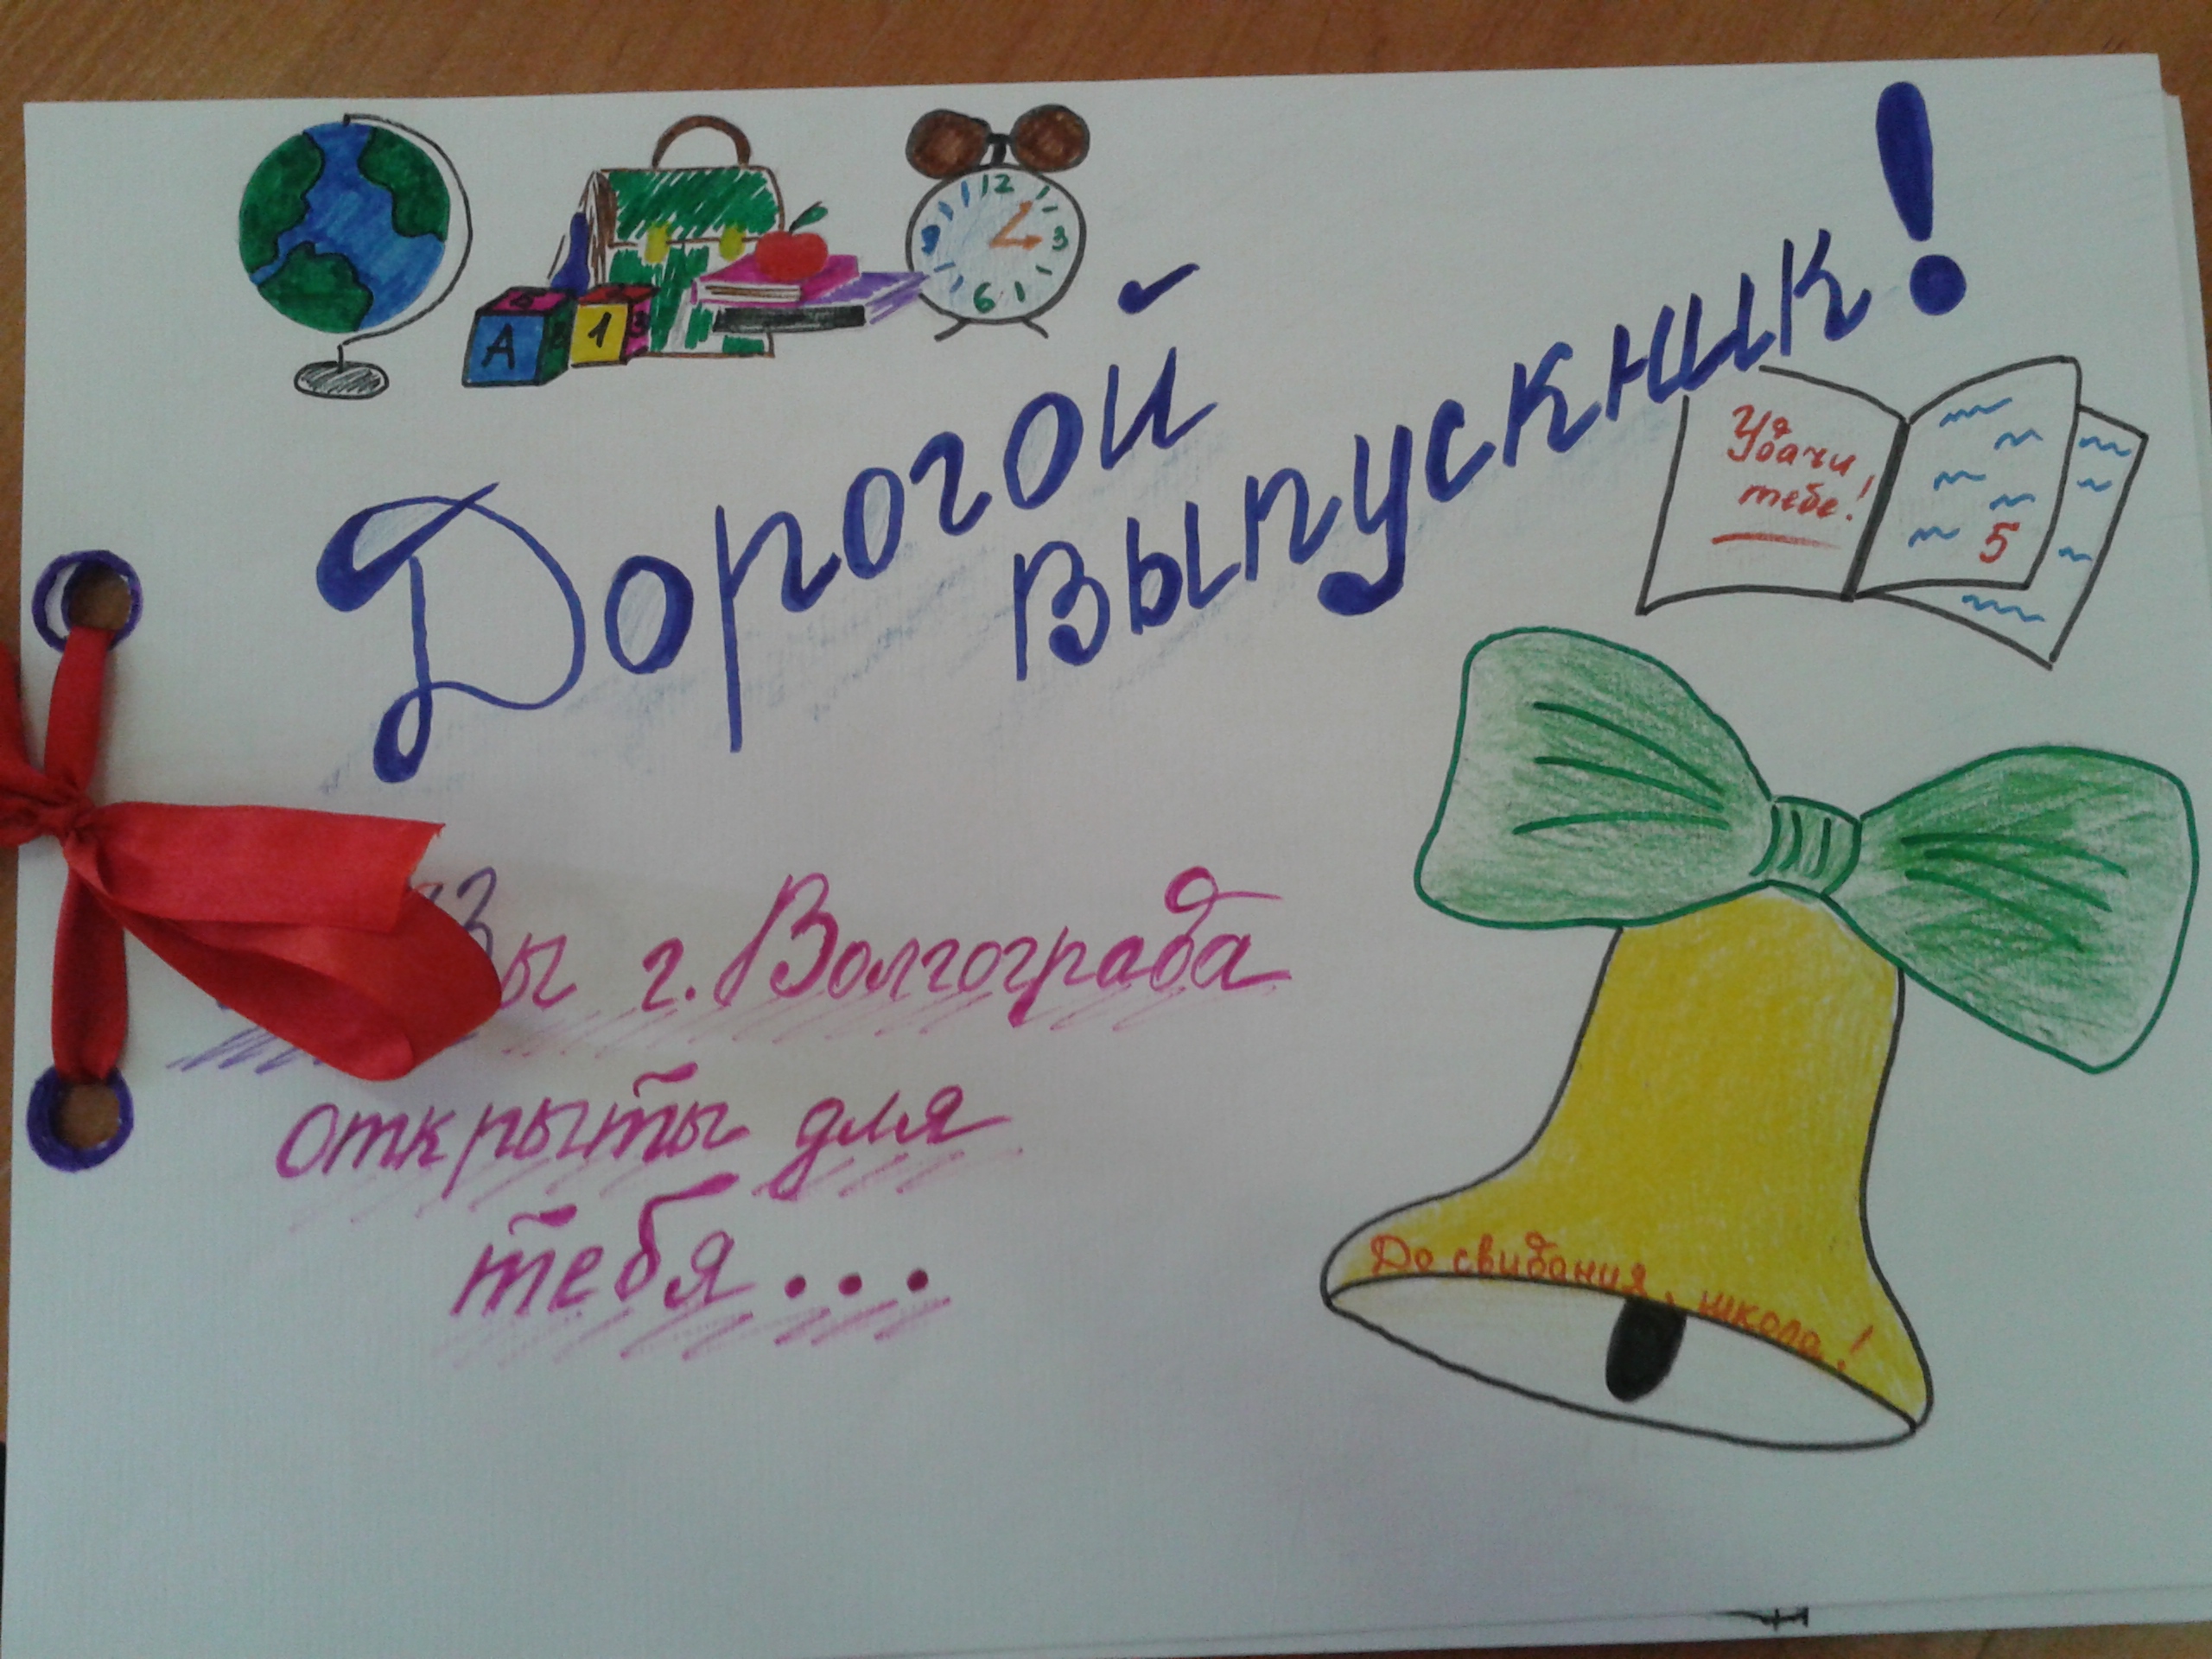 12
3
6
9
А
1
Дорогой
выпускник!
Удачи
тебе!
5
г. Волгограда
открыты для
тебя...
До свидания, школа!